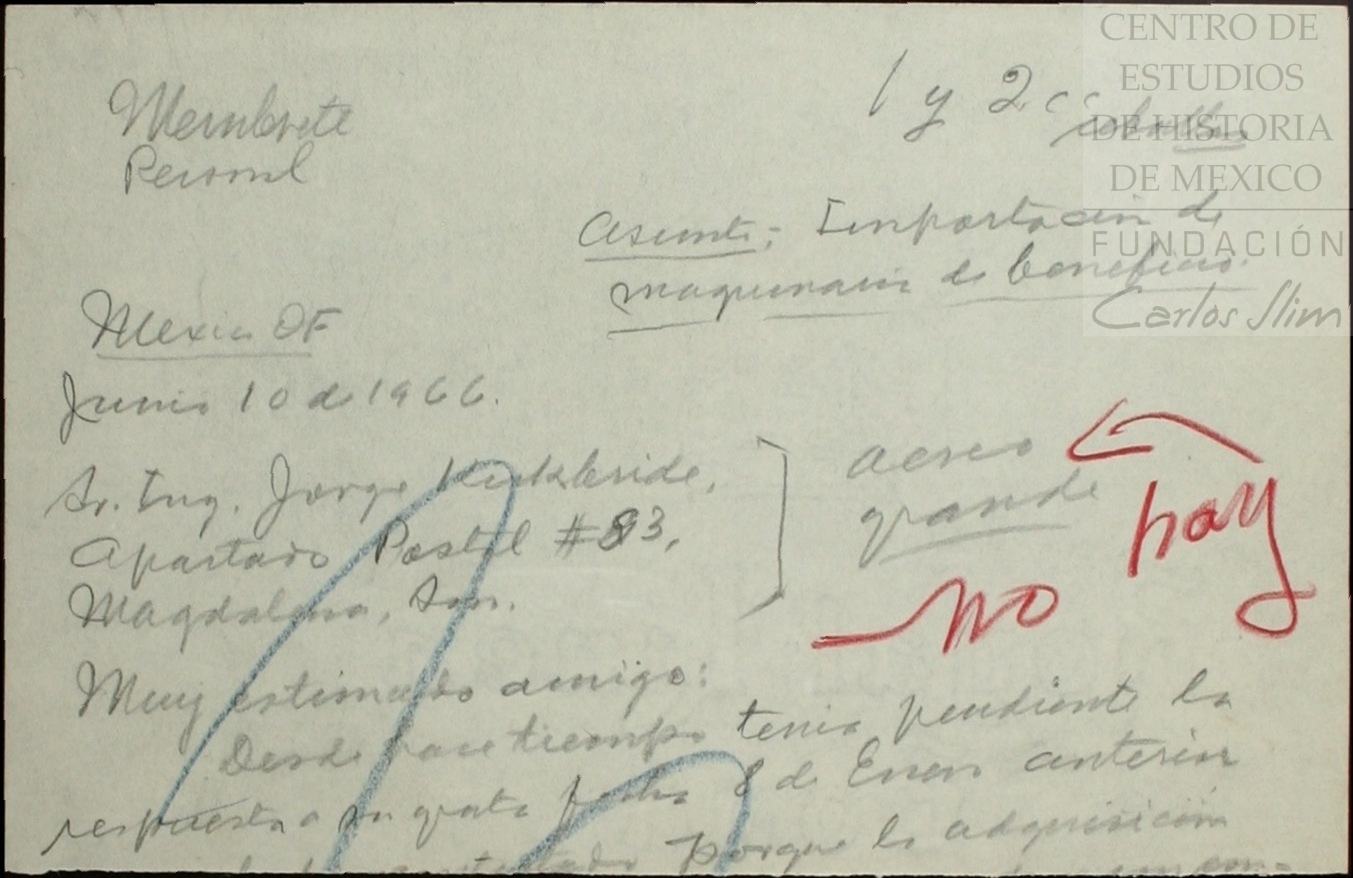 Membrete
Personal
1 y 2 cc
Asunto: Importación de
maquinaria de beneficio.
Mexico DF
Junio 10 de 1966.
Sr. Ing. Jorge Kirkbride,
Apartado Postal #83,
Magdalena, Son.
aereo
grande
no hay
Muy estimado amigo:
Desde hace tiempo tenia pendiente la
respuesta a su grata fecha 8 de Enero anterior
porque la adquisición
CENTRO DE
ESTUDIOS
DE HISTORIA
DE MEXICO
FUNDACIÓN
Carlos Slim